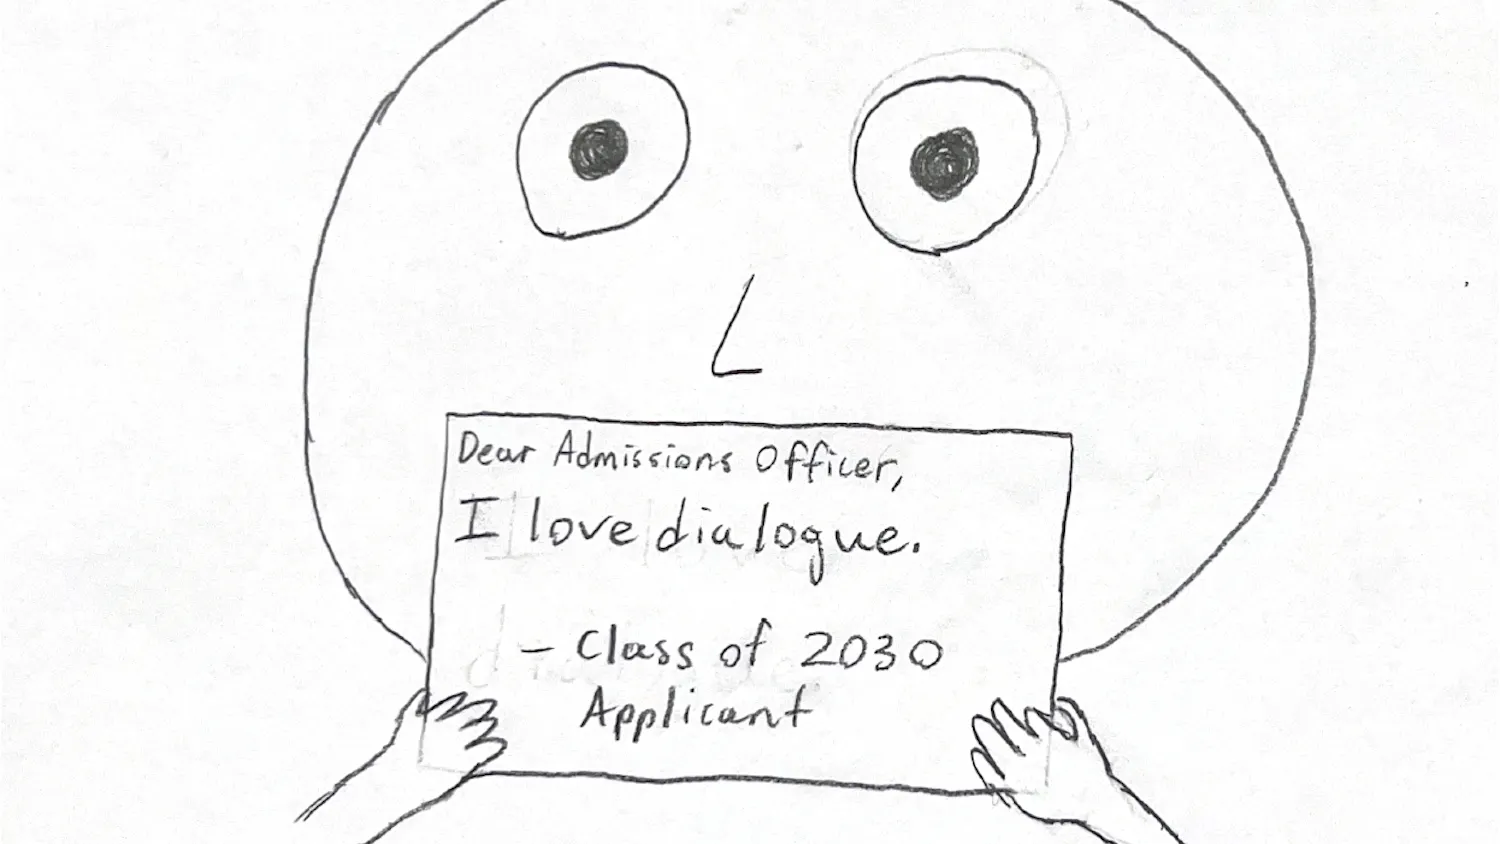 Dear Admissions Officer,
I love dialogue.
- Class of 2030
Applicant